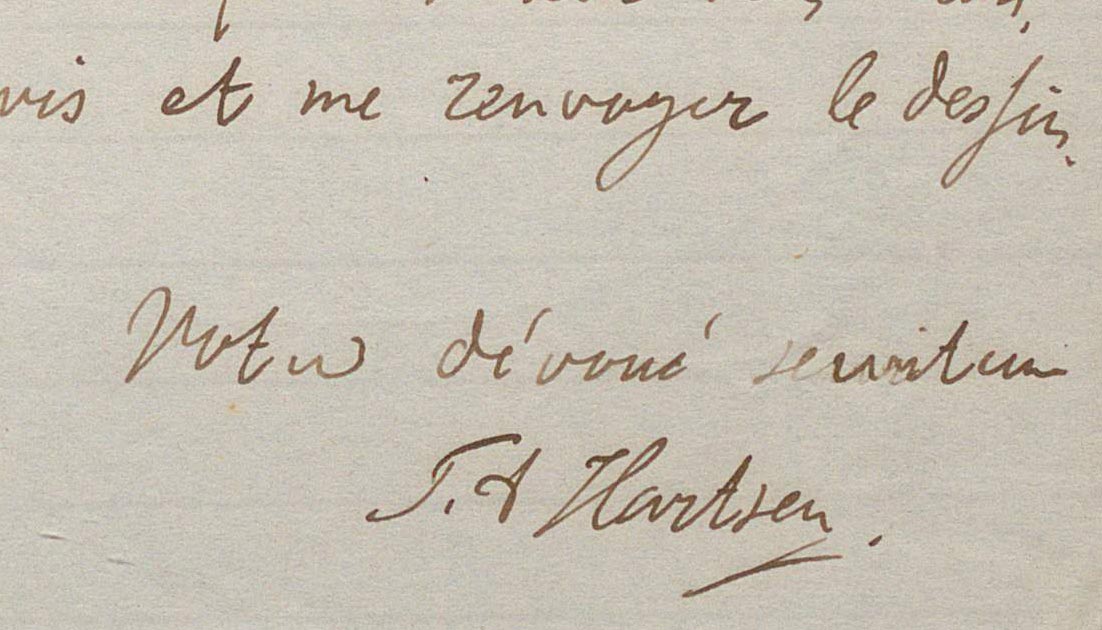 vis et me renvoyer le dessin.
Votre dévoué serviteur
F. A Hartsen.